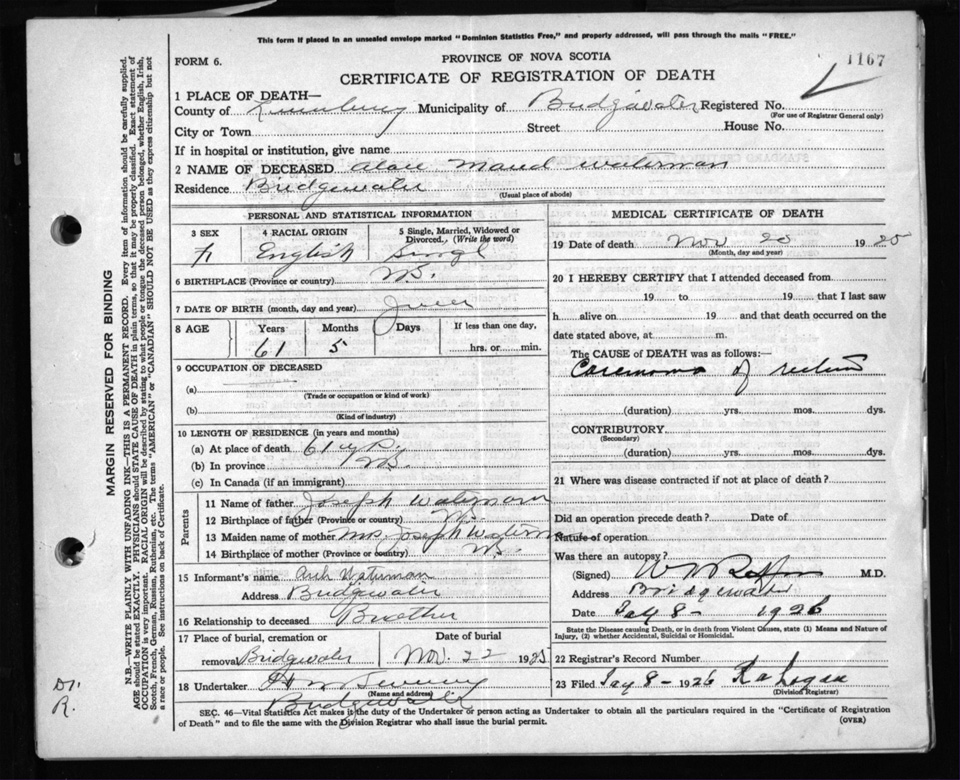 This form if placed in an unsealed envelope marked "Dominion Statistics Free," and properly addressed, will pass through the mails "FREE."
FORM 6.
PROVINCE OF NOVA SCOTIA
1167
CERTIFICATE OF REGISTRATION OF DEATH
1 PLACE OF DEATH—
County of Lunenburg Municipality of Bridgewater Registered No.
(For use of Registrar General only)
City or Town Street House No.
If in hospital or institution, give name
2 NAME OF DECEASED Maud Waterman
Residence Bridgewater
(Usual place of abode)
PERSONAL AND STATISTICAL INFORMATION
3 SEX
4 RACIAL ORIGIN
5 Single, Married, Widowed or Divorced. (Write the word)
F English Singl
6 BIRTHPLACE (Province or country) N.S.
7 DATE OF BIRTH (month, day and year) June
8 AGE Years Months Days If less than one day,
61 5 hrs. or min.
9 OCCUPATION OF DECEASED
(a)
(Trade or occupation or kind of work)
(b)
(Kind of industry)
10 LENGTH OF RESIDENCE (in years and months)
(a) At place of death 61 yrs.
(b) In province N.S.
(c) In Canada (if an immigrant)
Parents
11 Name of father Joseph Waterman
12 Birthplace of father (Province or country) N.S.
13 Maiden name of mother Mrs Joseph Waterm
14 Birthplace of mother (Province or country) N.S.
15 Informant's name Arch Waterman
Address Bridgewater
16 Relationship to deceased Brother
17 Place of burial, cremation or removal Bridgwater
Date of burial
Nov. 22 1925
18 Undertaker
(Name and address)
Bridgewater
MEDICAL CERTIFICATE OF DEATH
19 Date of death Nov 20 1925
(Month, day and year)
20 I HEREBY CERTIFY that I attended deceased from
19 to 19 that I last saw
h alive on 19 and that death occurred on the
date stated above, at m.
The CAUSE of DEATH was as follows:—
of rectum
(duration) yrs. mos. dys.
CONTRIBUTORY
(Secondary)
(duration) yrs. mos. dys.
21 Where was disease contracted if not at place of death?
Did an operation precede death? Date of
Nature of operation
Was there an autopsy?
(Signed) M.D.
Address Bridgewater
Date Jay 8- 1926
State the Disease causing Death, or in death from Violent Causes, state (1) Means and Nature of Injury, (2) whether Accidental, Suicidal or Homicidal.
22 Registrar's Record Number
23 Filed Jay 8- 1926
(Division Registrar)
SEC. 46—Vital Statistics Act makes it the duty of the Undertaker or person acting as Undertaker to obtain all the particulars required in the "Certificate of Registration
of Death" and to file the same with the Division Registrar who shall issue the burial permit.
(OVER)
MARGIN RESERVED FOR BINDING
N.B.—WRITE PLAINLY WITH UNFADING INK—THIS IS A PERMANENT RECORD. Every item of information should be carefully supplied.
AGE should be stated EXACTLY. PHYSICIANS should STATE CAUSE OF DEATH in plain terms, so that it may be properly classified. Exact statement of
OCCUPATION is very important. RACIAL ORIGIN will be described by stating to what people or tongue the deceased person belonged, whether English, Irish,
Scotch, French, German, Russian, Ruthenian, etc. The terms "AMERICAN" or "CANADIAN" SHOULD NOT BE USED as they express citizenship but not
a race or people. See instructions on back of Certificate.
R.